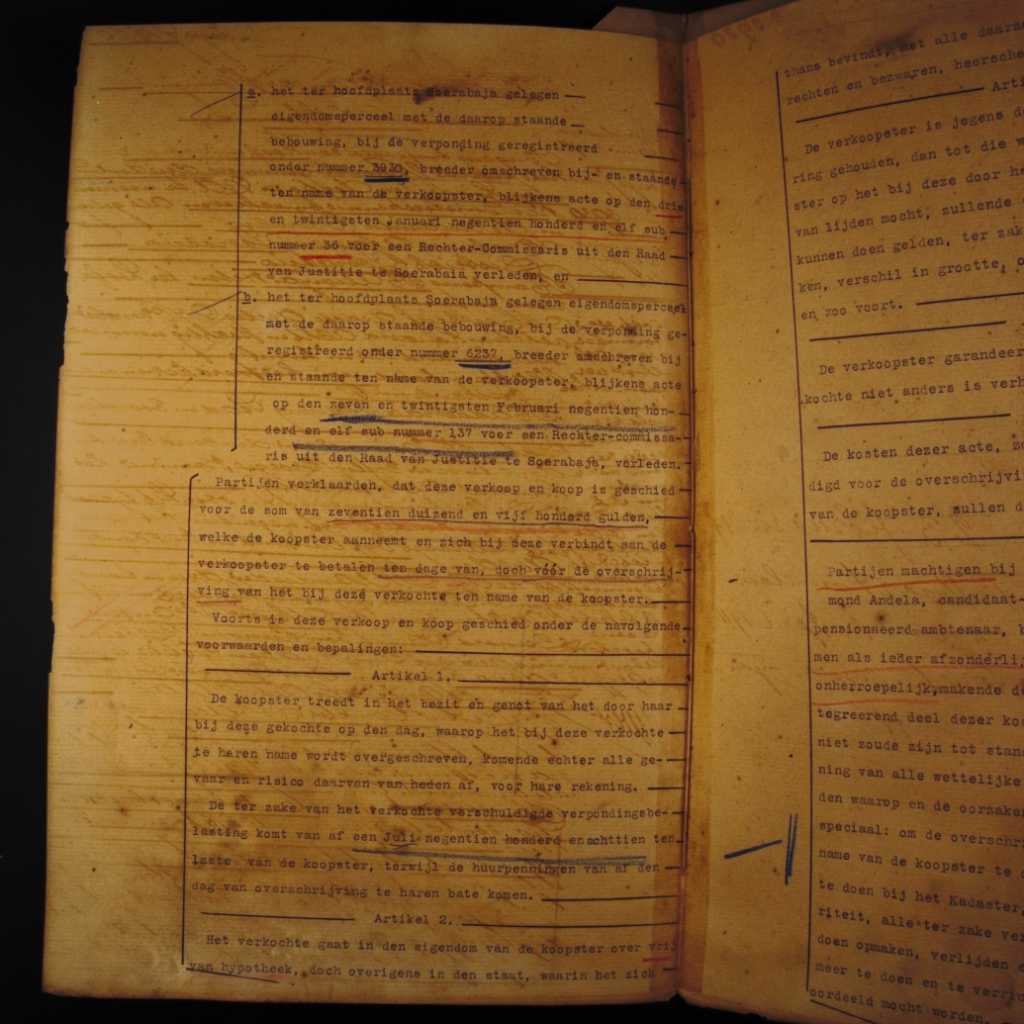 a. het ter hoofdplaats Soerabaja gelegen
eigendomsperceel met de daarop staande
bebouwing, bij de verponding geregistreerd
onder nummer 3930, breeder omschreven bij- en staande
ten name van de verkoopster, blijkens acte op den drie
en twintigsten Januari negentien honderd en elf sub
nummer 36 voor een Rechter-Commissaris uit den Raad
van Justitie te Soerabaia verleden, en
b. het ter hoofdplaats Soerabaja gelegen eigendomsperceel
met de daarop staande bebouwing, bij de verponding ge-
registreerd onder nummer 6237, breeder omschreven bij
en staande ten name van de verkoopster, blijkens acte
op den zeven en twintigsten Februari negentien hon-
derd en elf sub nummer 137 voor een Rechter-commissa-
ris uit den Raad van Justitie te Soerabaja, verleden.
Partijen verklaarden, dat deze verkoop en koop is geschied
voor de som van zeventien duizend en vijf honderd gulden,
welke de koopster aanneemt en zich bij deze verbindt aan de
verkoopster te betalen ten dage van, doch vóór de overschrij-
ving van het bij deze verkochte ten name van de koopster.
Voorts is deze verkoop en koop geschied onder de navolgende
voorwaarden en bepalingen:
Artikel 1.
De koopster treedt in het bezit en genot van het door haar
bij deze gekochte op den dag, waarop het bij deze verkochte
te haren name wordt overgeschreven, komende echter alle ge-
vaar en risico daarvan van heden af, voor hare rekening.
De ter zake van het verkochte verschuldigde verpondingsbe-
lasting komt van af een Juli negentien honderd en achttien ten
laste van de koopster, terwijl de huurpenningen van af den
dag van overschrijving te haren bate komen.
Artikel 2.
Het verkochte gaat in den eigendom van de koopster over vrij
van hypotheek, doch overigens in den staat, waarin het zich
thans bevindt, met alle daaraa
rechten en bezwaren, heersche
Arti
De verkoopster is jegens d
ring gehouden, dan tot die w
ster op het bij deze door ha
van lijden mocht, zullende
kunnen doen gelden, ter zak
ken, verschil in grootte, o
en zoo voort.
De verkoopster garandeer
kochte niet anders is verh
De kosten dezer acte, zo
digd voor de overschrijvi
van de koopster, zullen d
Partijen machtigen bij
mond Andela, candidaat-
pensionneerd ambtenaar, b
men als ieder afzonderli
onherroepelijk, makende de
tegreerend deel dezer koo
niet zoude zijn tot stan
ning van alle wettelijke
den waarop en de oorzaken
speciaal: om de overschri
name van de koopster te
te doen bij het Kadaster,
riteit, alle ter zake ver
doen opmaken, verlijden
meer te doen en te verric
oordeeld mocht worden,